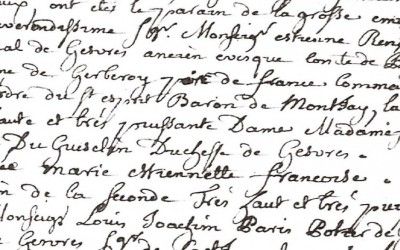 ont étés le parain de la grosse
reverendissime Sgr. Monseigr. estienne Ren
al de Gesvres ancien evesque comte de B
me de Gerberoy pair de france comma
ordre du st esprit Baron de Montjay, la
haute et très puissante Dame Madame
Du Guesclin Duchesse de Gesvres.
marie estiennette francoise.
in de la seconde Très haut et très pui
Monseigr Louis Joachim Paris Potier de
Gesvres